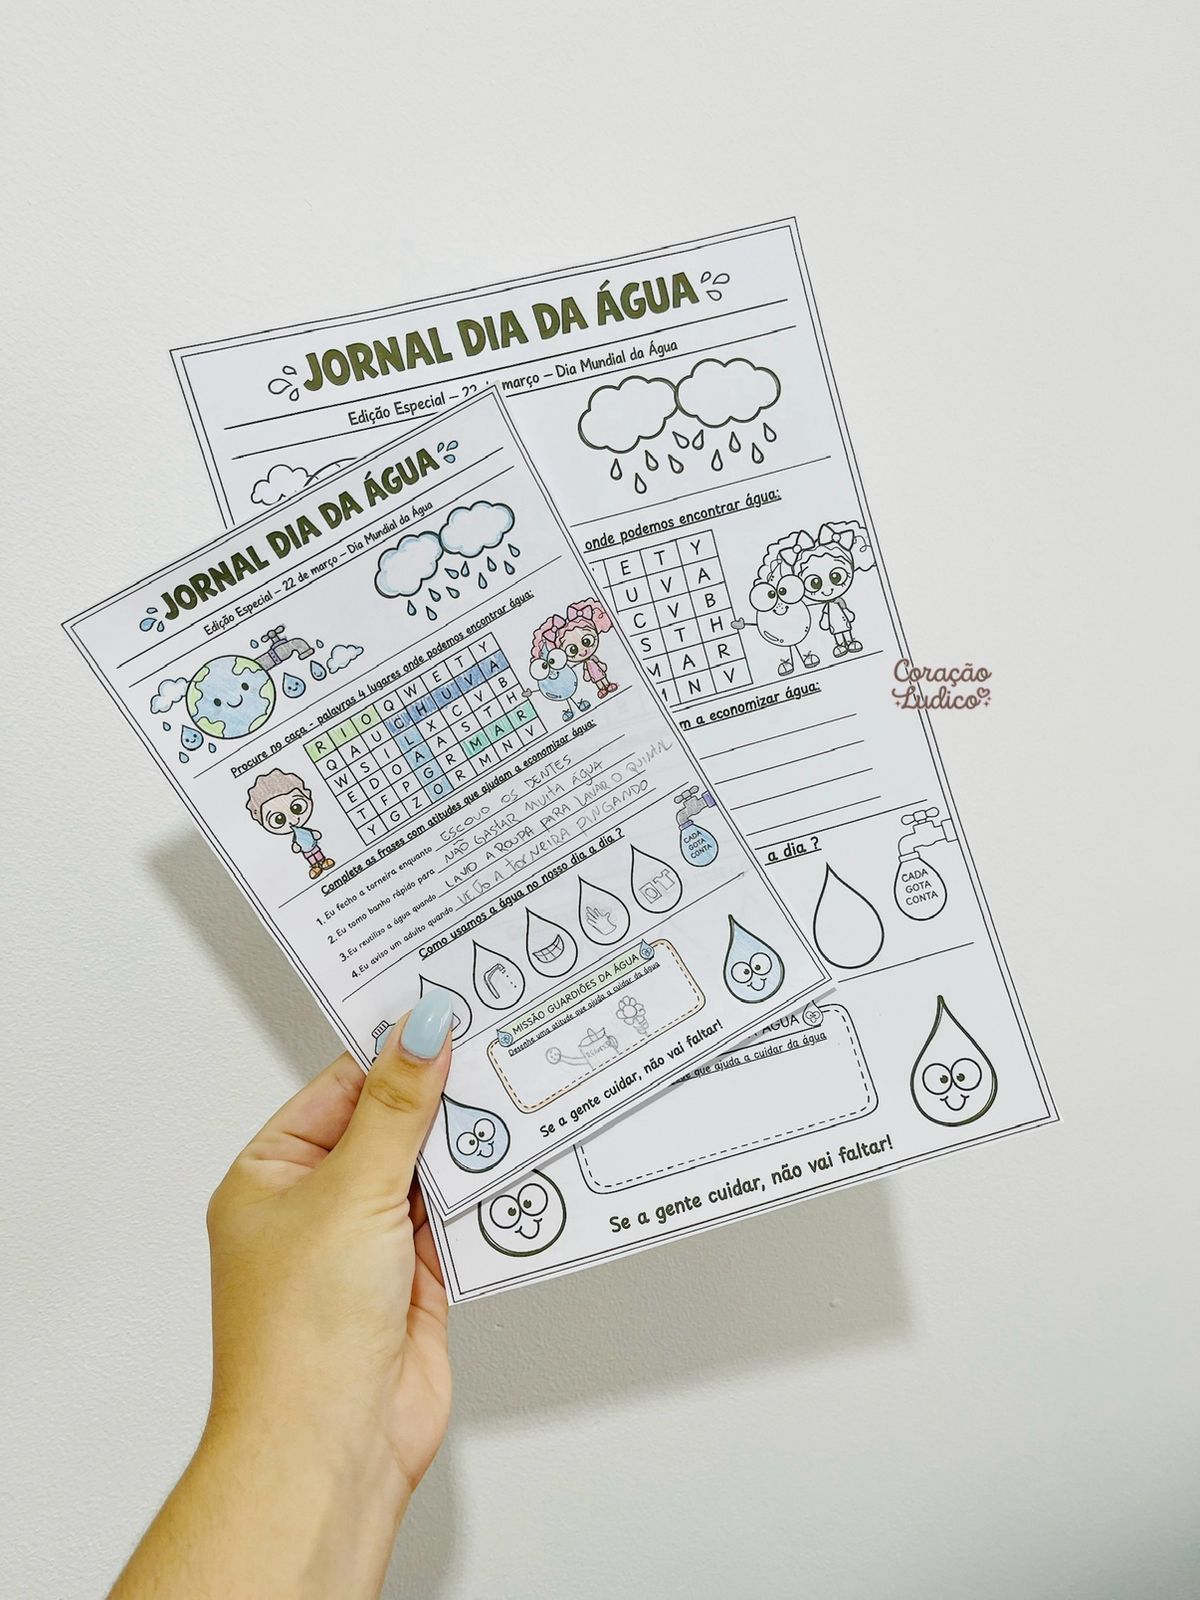 JORNAL DIA DA ÁGUA
Edição Especial – 22 de março – Dia Mundial da Água
Procure no caça - palavras 4 lugares onde podemos encontrar água:
R I O Q W E T Y
Q A U C H U V A
W S I L X C V B
E D O A A S T H
T F P G R M A R
Y G Z O R M N V
Complete as frases com atitudes que ajudam a economizar água:
1. Eu fecho a torneira enquanto ESCOVO OS DENTES
2. Eu tomo banho rápido para NÃO GASTAR MUITA ÁGUA
3. Eu reutilizo a água quando LAVO A ROUPA PARA LAVAR O QUINTAL
4. Eu aviso um adulto quando VEJO A TORNEIRA PINGANDO
Como usamos a água no nosso dia a dia ?
CADA
GOTA
CONTA
MISSÃO GUARDIÕES DA ÁGUA
Desenhe uma atitude que ajuda a cuidar da água
Se a gente cuidar, não vai faltar!
JORNAL DIA DA ÁGUA
Edição Especial – 22 de março – Dia Mundial da Água
onde podemos encontrar água:
E T Y
U V A
C V B
S T H
M A R
M N V
m a economizar água:
a dia ?
CADA
GOTA
CONTA
ÁGUA
que ajuda a cuidar da água
Se a gente cuidar, não vai faltar!
Coração
Lúdico